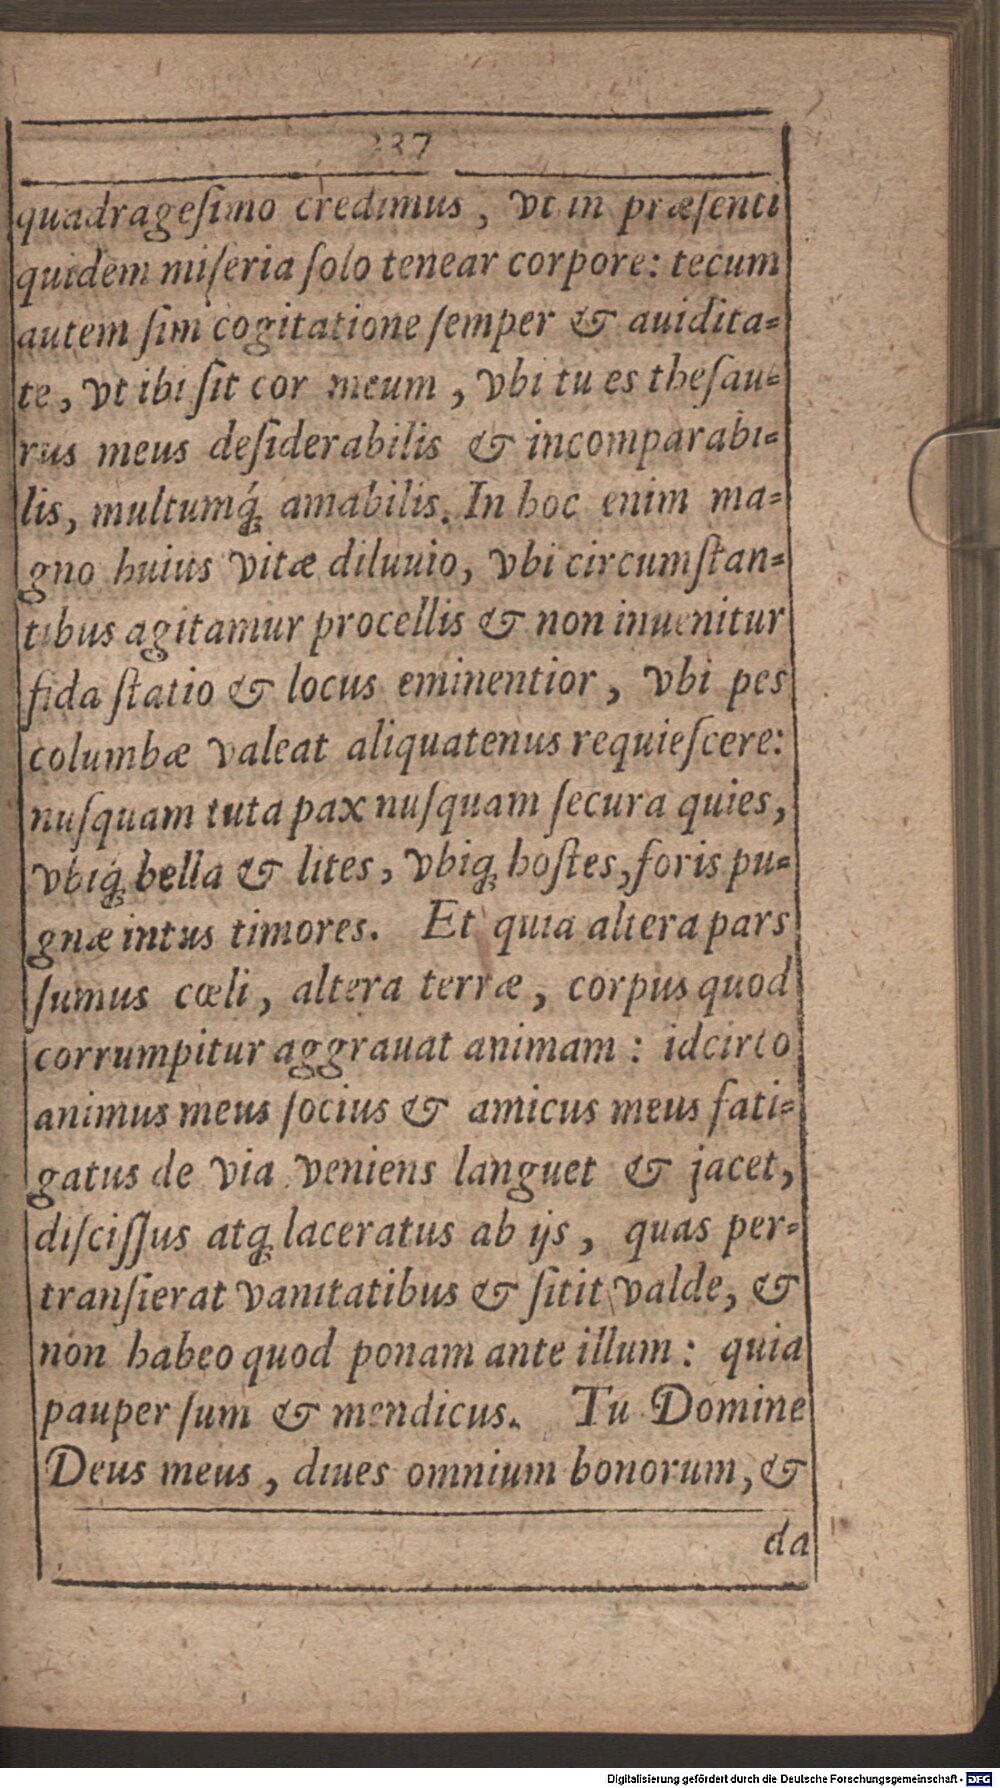 237
quadrageſimo credimus, vt in præſenti
quidem miſeria ſolo tenear corpore: tecum
autem ſim cogitatione ſemper & auidita=
te, vt ibi ſit cor meum, vbi tu es theſau=
rus meus deſiderabilis & incomparabi=
lis, multumq́; amabilis. In hoc enim ma=
gno huius vitæ diluuio, vbi circumſtan=
tibus agitamur procellis & non inuenitur
fida ſtatio & locus eminentior, vbi pes
columbæ valeat aliquatenus requieſcere:
nuſquam tuta pax nuſquam ſecura quies,
vbiq́; bella & lites, vbiq; hoſtes, foris pu=
gnæ intus timores. Et quia altera pars
ſumus cœli, altera terræ, corpus quod
corrumpitur aggrauat animam: idcirco
animus meus ſocius & amicus meus fati=
gatus de via veniens languet & jacet,
diſciſſus atq; laceratus ab ijs, quas per=
tranſierat vanitatibus & ſitit valde, &
non habeo quod ponam ante illum: quia
pauper ſum & mendicus. Tu Domine
Deus meus, diues omnium bonorum, &
da
Digitalisierung gefördert durch die Deutsche Forschungsgemeinschaft - DFG